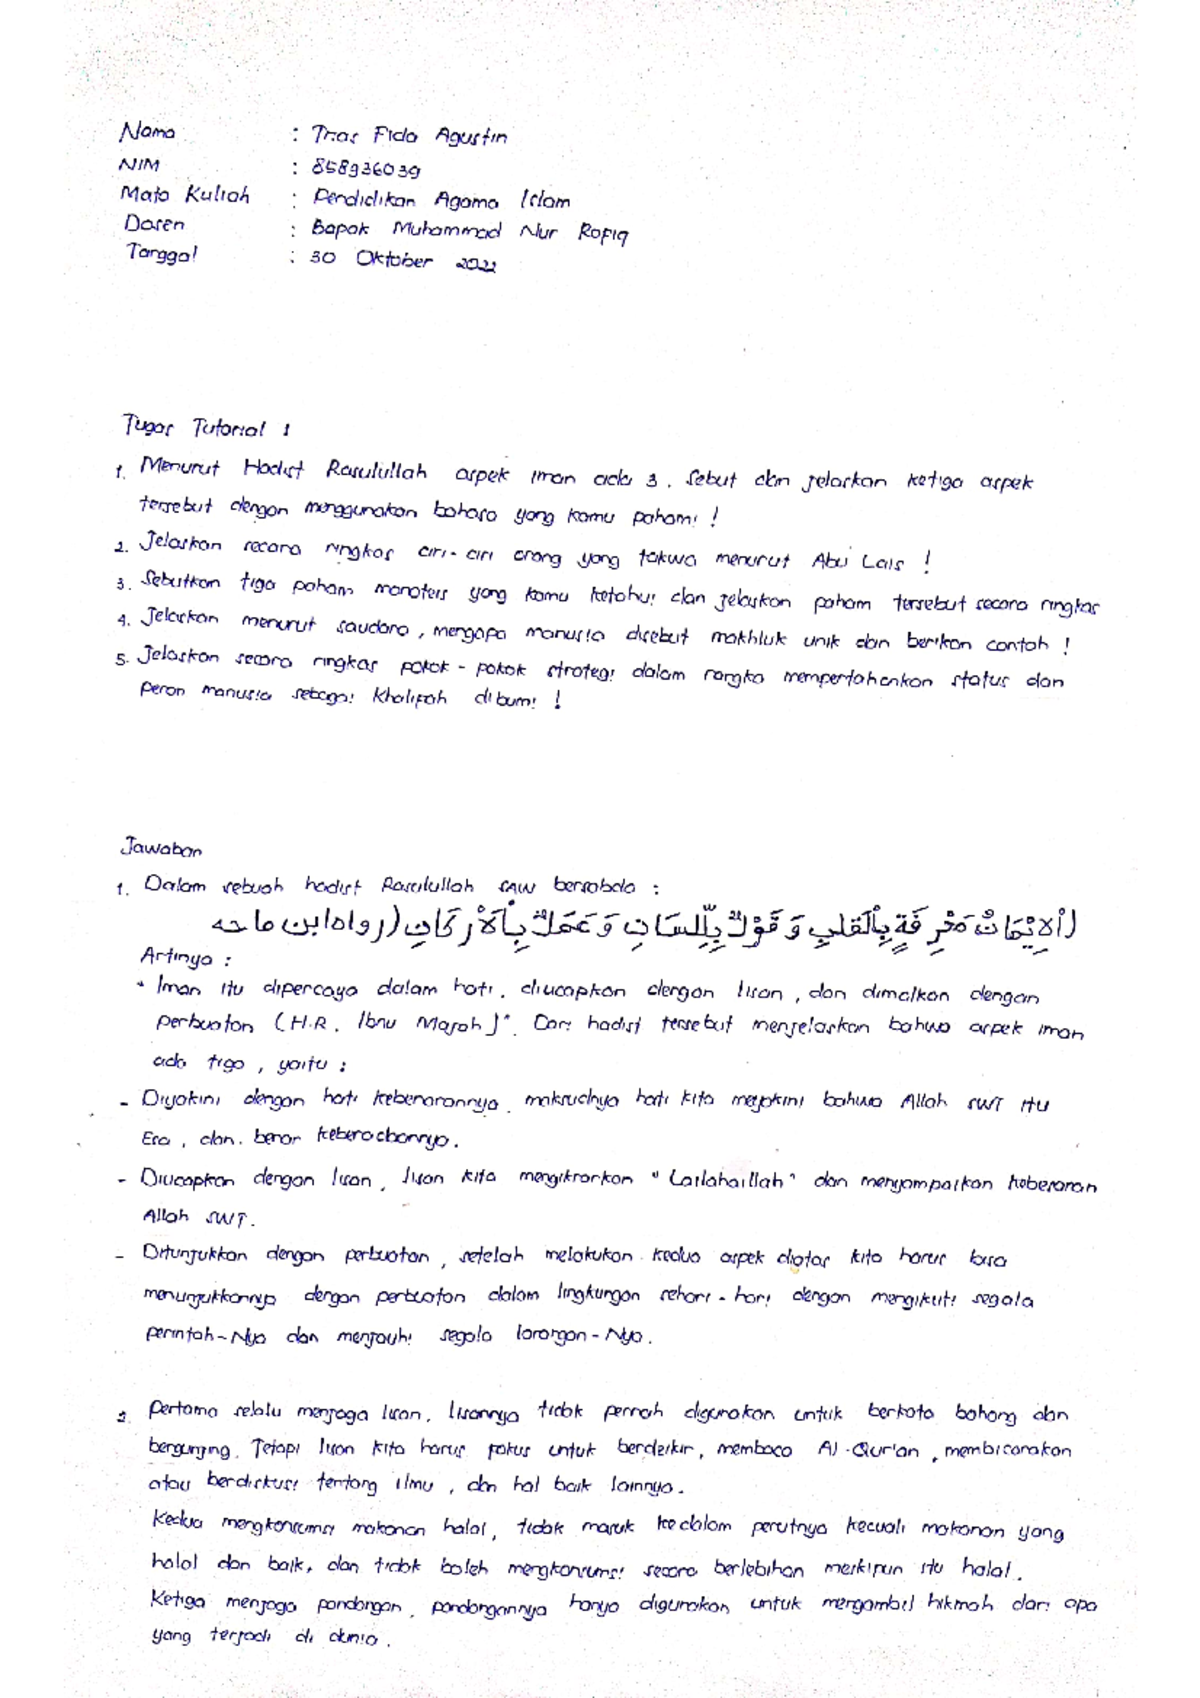 Nama : Trias Fida Agustin
NIM : 858936039
Mata Kuliah : Pendidikan Agama Islam
Dosen : Bapak Muhammad Nur Rofiq
Tanggal : 30 Oktober 2022
Tugas Tutorial 1
1. Menurut Hadist Rasulullah aspek iman ada 3. Sebut dan jelaskan ketiga aspek
tersebut dengan menggunakan bahasa yang kamu pahami !
2. Jelaskan secara ringkas ciri-ciri orang yang takwa menurut Abu Lais !
3. Sebutkan tiga paham monoteis yang kamu ketahui dan jelaskan paham tersebut secara ringkas
4. Jelaskan menurut saudara, mengapa manusia disebut makhluk unik dan berikan contoh !
5. Jelaskan secara ringkas pokok-pokok strategi dalam rangka mempertahankan status dan
peran manusia sebagai khalifah dibumi !
Jawaban
1. Dalam sebuah hadist Rasulullah SAW bersabda :
(اَلإِيْمَانُ مَعْرِفَةٍ بِالْقَلبِ وَ قَوْلٌ بِللِّسَانِ وَ عَمَلٌ بِاْلَأرْكَانِ (رواه ابن ماجه
Artinya :
" Iman itu dipercaya dalam hati, diucapkan dengan lisan, dan dimalkan dengan
perbuatan (H.R. Ibnu Majah)". Dari hadist tersebut menjelaskan bahwa aspek iman
ada tiga, yaitu :
- Diyakini dengan hati kebenarannya, maksudnya hati kita meyakini bahwa Allah SWT itu
Esa, dan benar keberadaannya.
- Diucapkan dengan lisan, lisan kita mengikrarkan "Lailahaillah" dan menyampaikan kebesaran
Allah SWT.
- Ditunjukkan dengan perbuatan, setelah melakukan kedua aspek diatas kita harus bisa
menunjukkannya dengan perbuatan dalam lingkungan sehari-hari dengan mengikuti segala
perintah-Nya dan menjauhi segala larangan-Nya.
2. Pertama selalu menjaga lisan, lisannya tidak pernah digunakan untuk berkata bohong dan
bergunjing. Tetapi lisan kita harus fokus untuk berdzikir, membaca Al-Qur'an, membicarakan
atau berdiskusi tentang ilmu, dan hal baik lainnya.
Kedua mengkonsumsi makanan halal, tidak masuk kedalam perutnya kecuali makanan yang
halal dan baik, dan tidak boleh mengkonsumsi secara berlebihan meskipun itu halal.
Ketiga menjaga pandangan, pandangannya hanya digunakan untuk mengambil hikmah dari apa
yang terjadi di dunia.